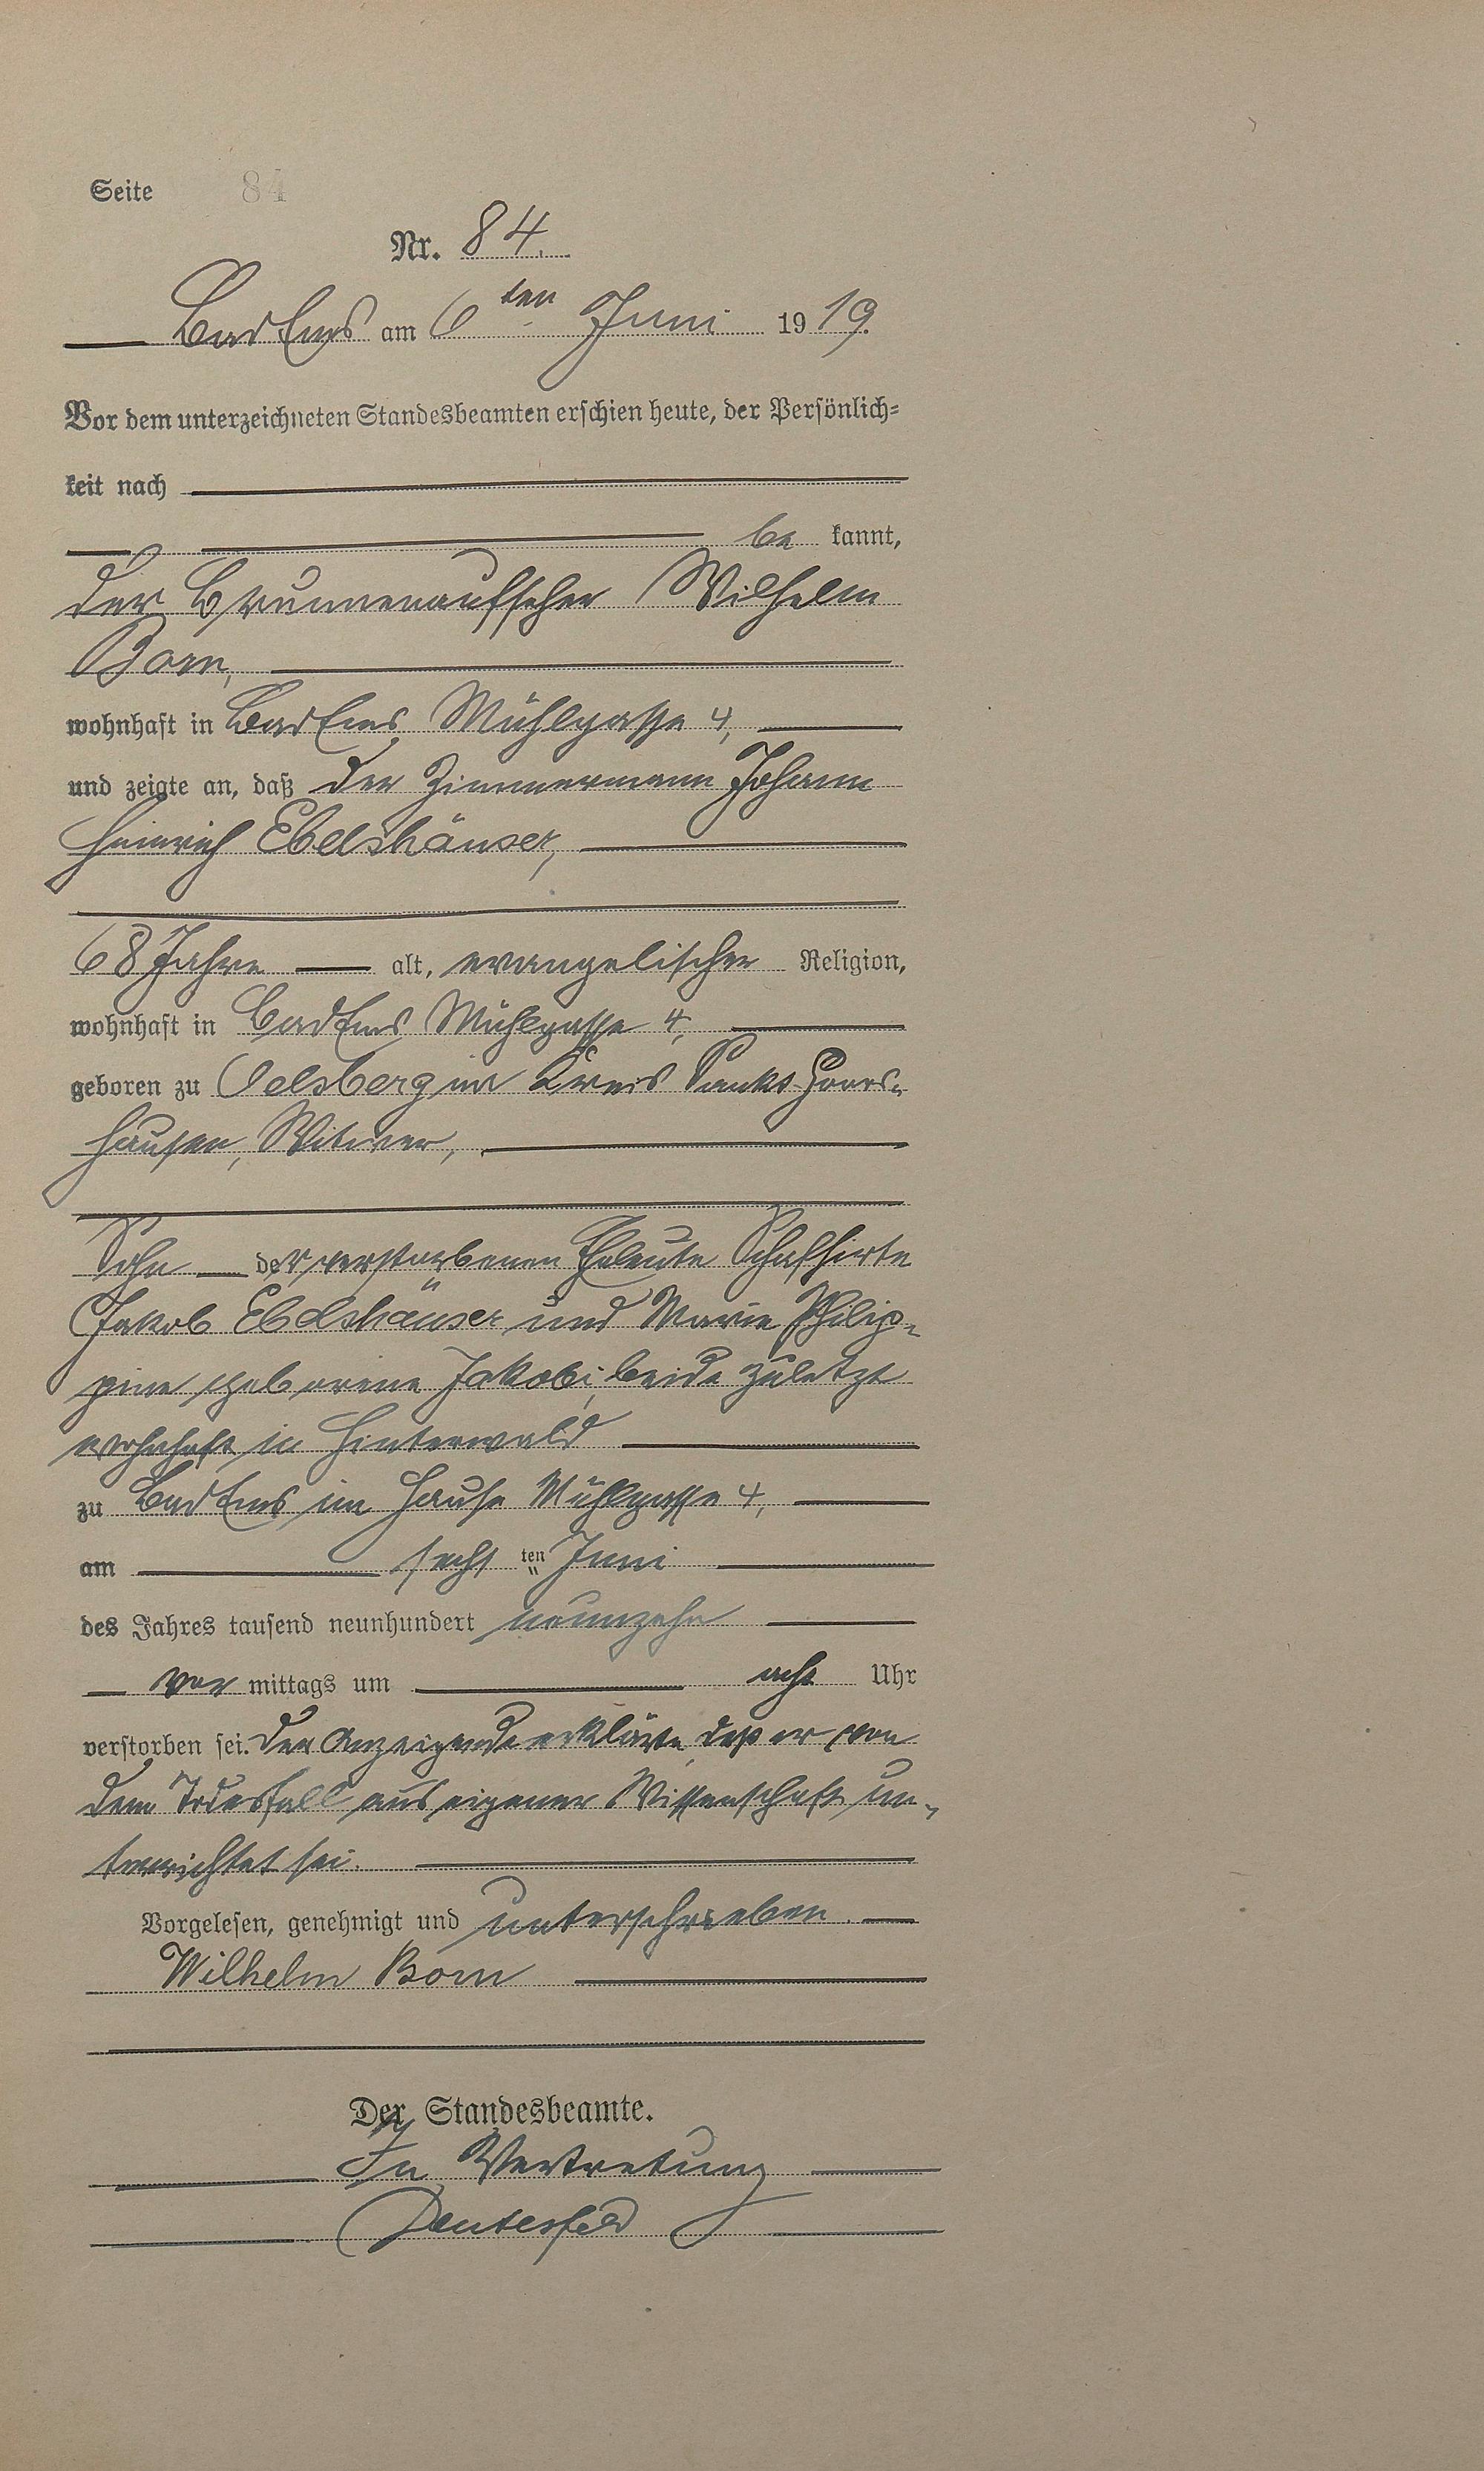 Seite 84
Nr. 84.
Bad Ems am 6ten Juni 1919.
Vor dem unterzeichneten Standesbeamten erschien heute, der Persönlich=
keit nach
be kannt,
der Brunnenaufseher Wilhelm
Born,
wohnhaft in Bad Ems, Mühlgasse 4,
und zeigte an, daß der Zimmermann Johann
Heinrich Ebelshäuser,
68 Jahre alt, evangelischer Religion,
wohnhaft in Bad Ems, Mühlgasse 4,
geboren zu Oelsberg im Kreis Sankt Goars-
hausen, Witwer,
Sohn der verstorbenen Eheleute Schafhirte
Jakob Ebelshäuser und Marie Philip-
pine geborene Jakobi, beide zuletzt
wohnhaft in Hinterwald
zu Bad Ems im Hause Mühlgasse 4,
am sechs ten Juni
des Jahres tausend neunhundert neunzehn
vor mittags um acht Uhr
verstorben sei. Der Anzeigende erklärte, daß er von
dem Todesfall aus eigener Wissenschaft un-
terrichtet sei.
Vorgelesen, genehmigt und unterschrieben.
Wilhelm Born
Der Standesbeamte.
In Vertretung